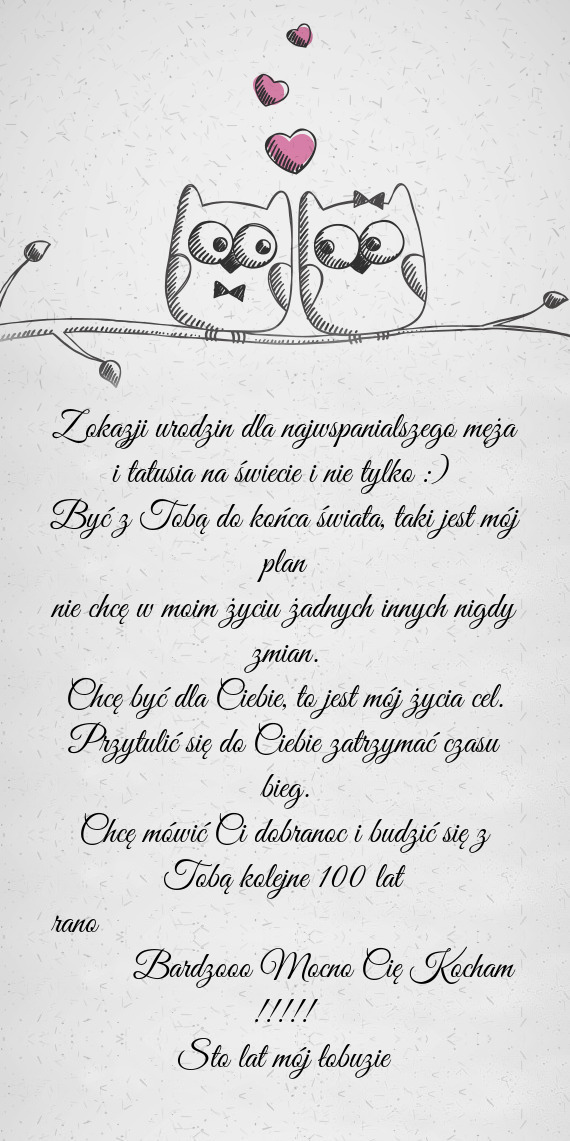 Zokazji urodzin dla najwspanialszego męża
i tatusia na świecie i nie tylko :)
Być z Tobą do końca świata, taki jest mój
plan
nie chcę w moim życiu żadnych innych nigdy
zmian.
Chcę być dla Ciebie, to jest mój życia cel.
Przytulić się do Ciebie zatrzymać czasu
bieg.
Chcę mówić Ci dobranoc i budzić się z
Tobą kolejne 100 lat
rano
Bardzooo Mocno Cię Kocham
!!!!!
Sto lat mój łobuzie